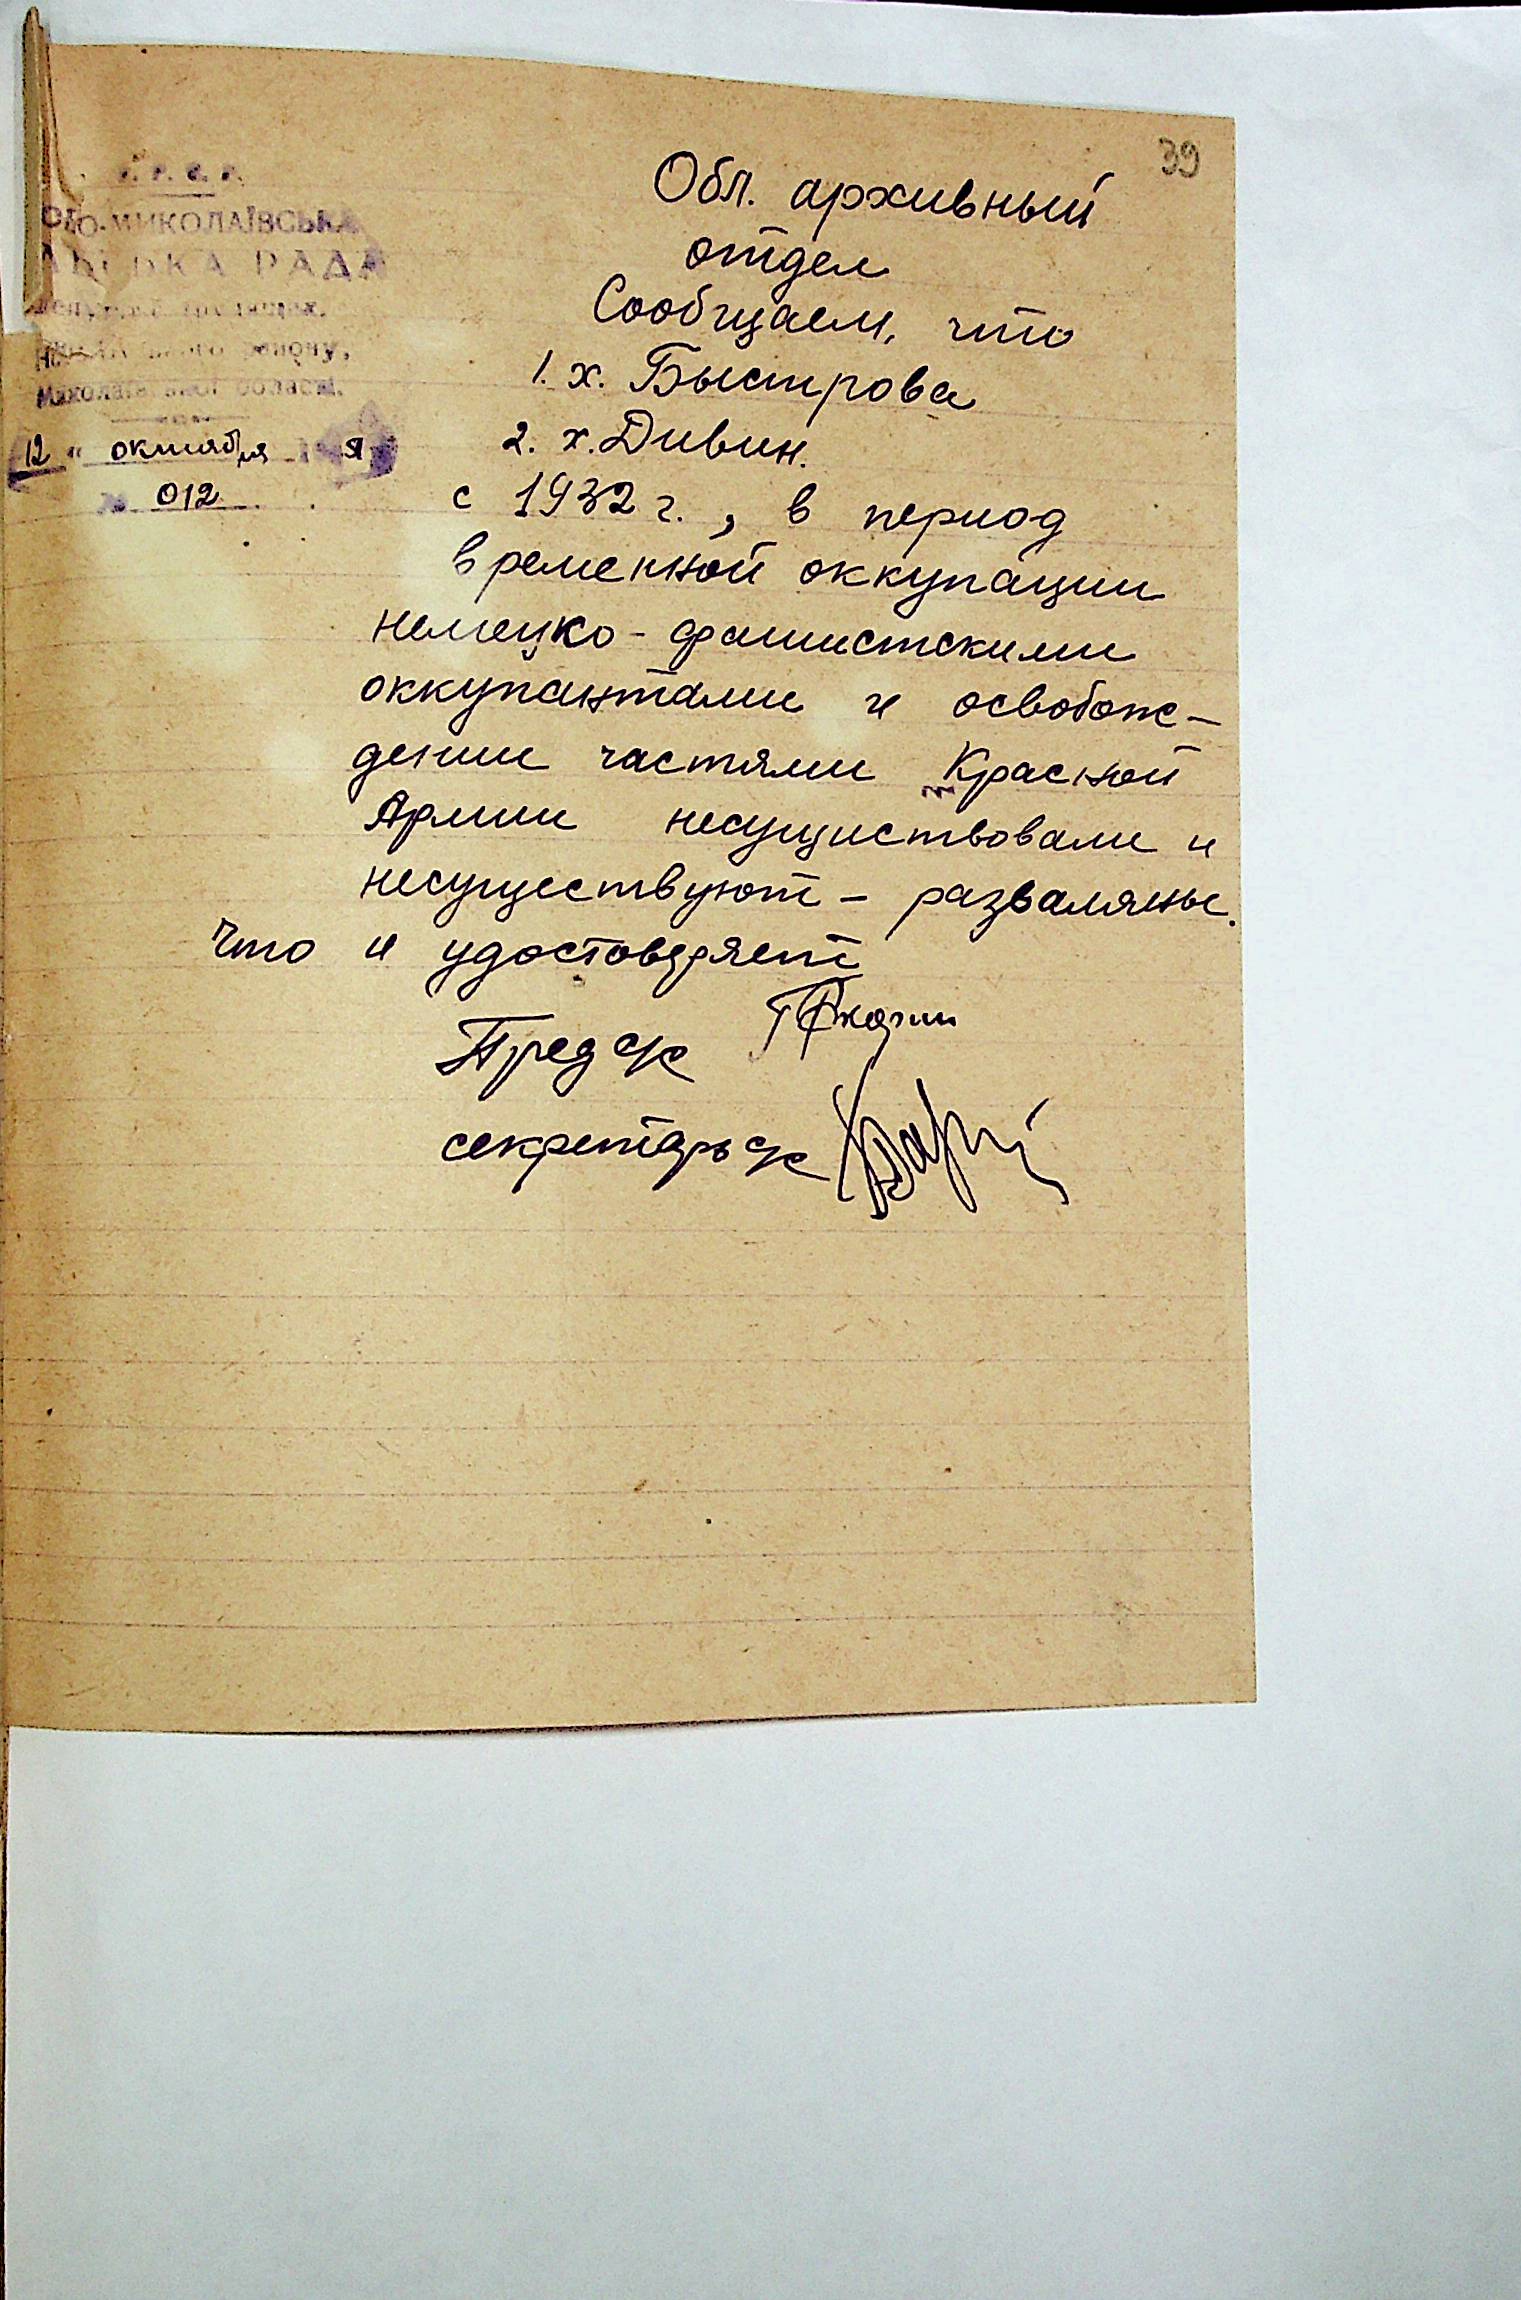 39
МИКОЛАЇВСЬКА
РАДА
району,
Миколаївської області.
12 " октября
№ 012
Обл. архивный
отдел
Сообщаем, что
1. х. Быстрова
2. х. Дивин.
с 1932 г., в период
временной оккупации
немецко-фашистскими
оккупантами и освобож-
дении частями Красной
Армии несуществовали и
несуществуют - разваляны.
Что и удостоверяет
Пред с/с
секретарь с/с